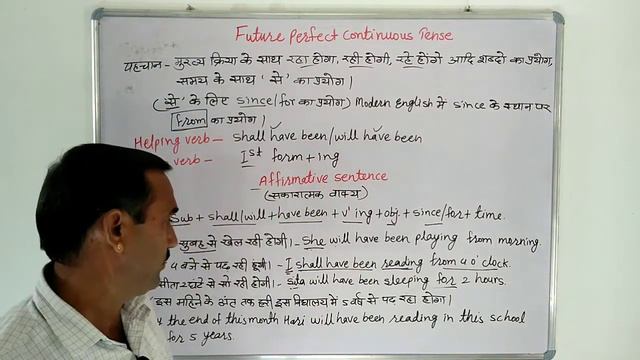 Future Perfect Continuous Tense
पहचान - मुख्य क्रिया के साथ रहा होगा, रही होगी, रहे होंगे आदि शब्दों का प्रयोग,
समय के साथ 'से' का प्रयोग।
('से' के लिए since/for का प्रयोग) Modern English में since के स्थान पर
From का प्रयोग।
Helping verb - shall have been/will have been
verb - Ist form + ing
Affirmative sentence
(सकारात्मक वाक्य)
Sub + shall/will + have been + v' ing + obj. + since/for + time.
सुबह से खेल रही होगी। - She will have been playing from morning.
4 बजे से पढ़ रही - I shall have been reading from 4 o' clock.
सीता 2 घंटे से सो रही होगी। - Sita will have been sleeping for 2 hours.
इस महिने के अंत तक हरी इस विद्यालय में 5 वर्ष से पढ़ रहा होगा।
the end of this month Hari will have been reading in this school
for 5 years.